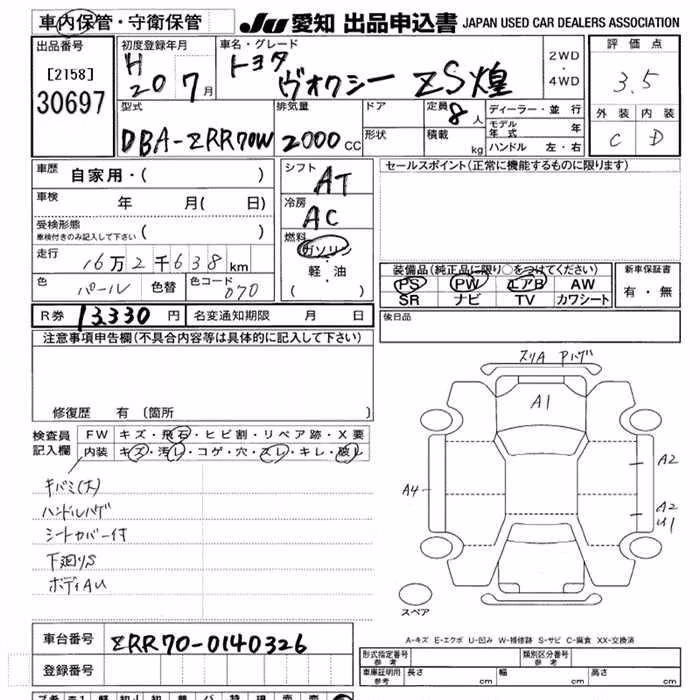 車内保管・守衛保管 JU 愛知 出品申込書 JAPAN USED CAR DEALERS ASSOCIATION
出品番号
[2158]
30697
初度登録年月
H 20 7月
車名・グレード
トヨタ ヴォクシー ZS煌
2WD
・
4WD
評価点
3.5
外装 内装
C D
型式
DBA-ZRR70W
排気量
2000cc
ドア
形状
定員 8人
積載 kg
ディーラー・並行
モデル年式 年
ハンドル 左・右
車歴 自家用・( )
車検 年 月( 日)
受検形態
車検付きのみ記入して下さい ( )
走行 16万2千638km
色 パール 色替 色コード 070
シフト AT
冷房 AC
燃料
ガソリン
・
軽・油
( )
セールスポイント(正常に機能するものに限ります)
装備品(純正品に限り○をつけてください)
PS PW エアB AW
SR ナビ TV カワシート
新車保証書
有・無
R券 13,330円 名変通知期限 月 日
後日品
注意事項申告欄(不具合内容等は具体的に記入して下さい)
修復歴 有 (箇所 )
検査員記入欄
FW キズ・飛石・ヒビ割・リペア跡・X要
内装 キズ・汚レ・コゲ・穴・スレ・キレ・破レ
キバミ(大)
ハンドルハゲ
シートカバー付
下廻りS
ボディAU
スリA Pハゲ
A1
A4
A2
A2
U1
スペア
A-キズ E-エクボ U-凹み W-補修跡 S-サビ C-腐食 XX-交換済
車台番号 ZRR70-0140326
登録番号
形式指定番号
参考
類別区分番号
参考
車庫証明用
参考
長さ cm 幅 cm 高さ cm